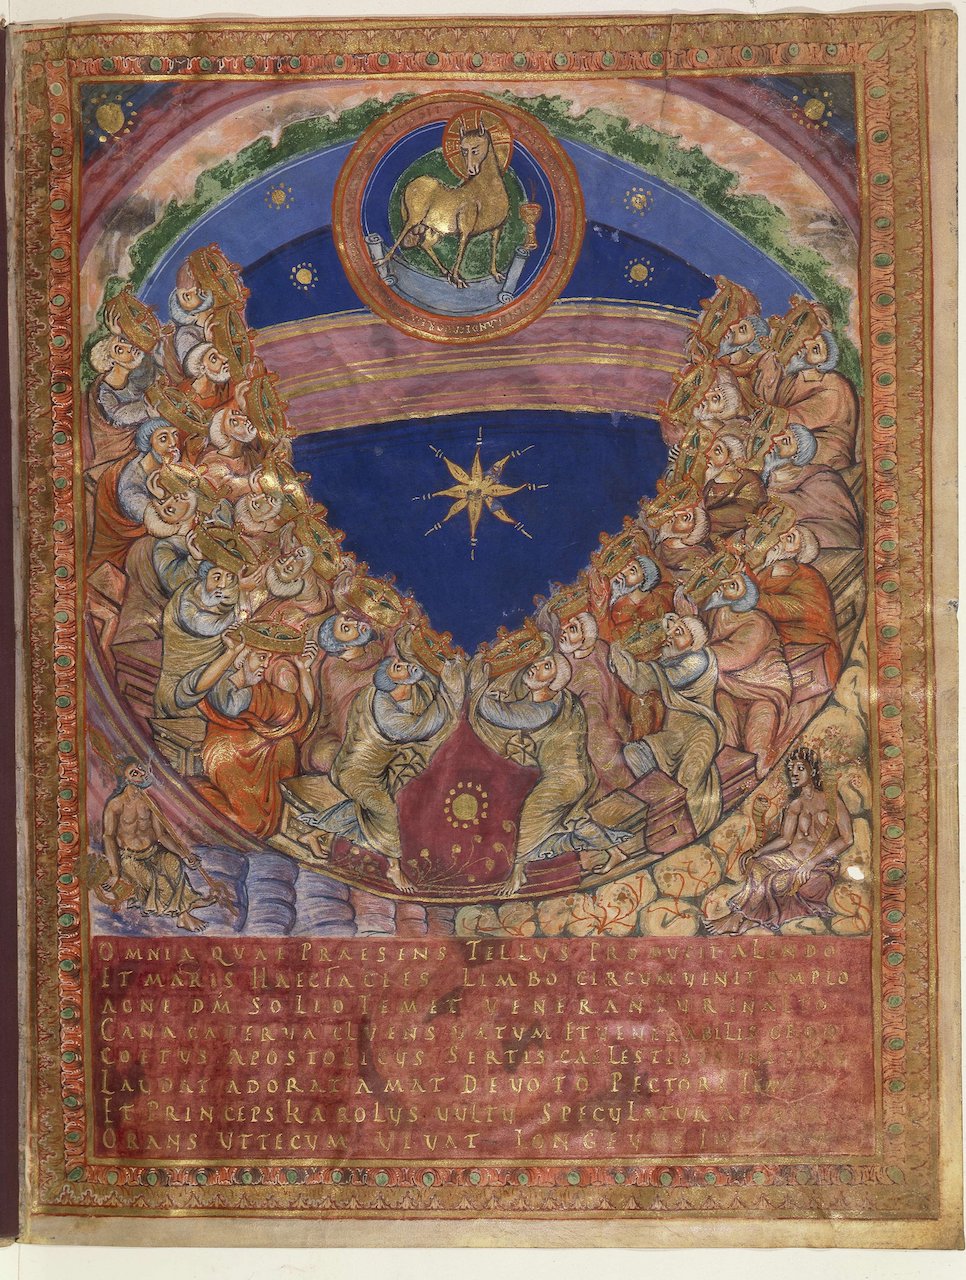 OMNIA QUAE PRAESENS TELLUS PRODUCIT ALENDO
ET MARIS HAEC FACIES LIMBO CIRCUMVENIT AMPLO
AGNE DM SOLIO TEMET VENERANTUR IN ALTO
CANA CATERVA CLUENS VATUM ET VENERABILIS ORDO
COETUS APOSTOLICUS SERTIS CAELESTIBUS
LAUDAT ADORAT AMAT DEVOTO PECTORE
ET PRINCEPS KAROLUS VULTU SPECULATUR
ORANS UT TECUM VIVAT LONGEVUS IN